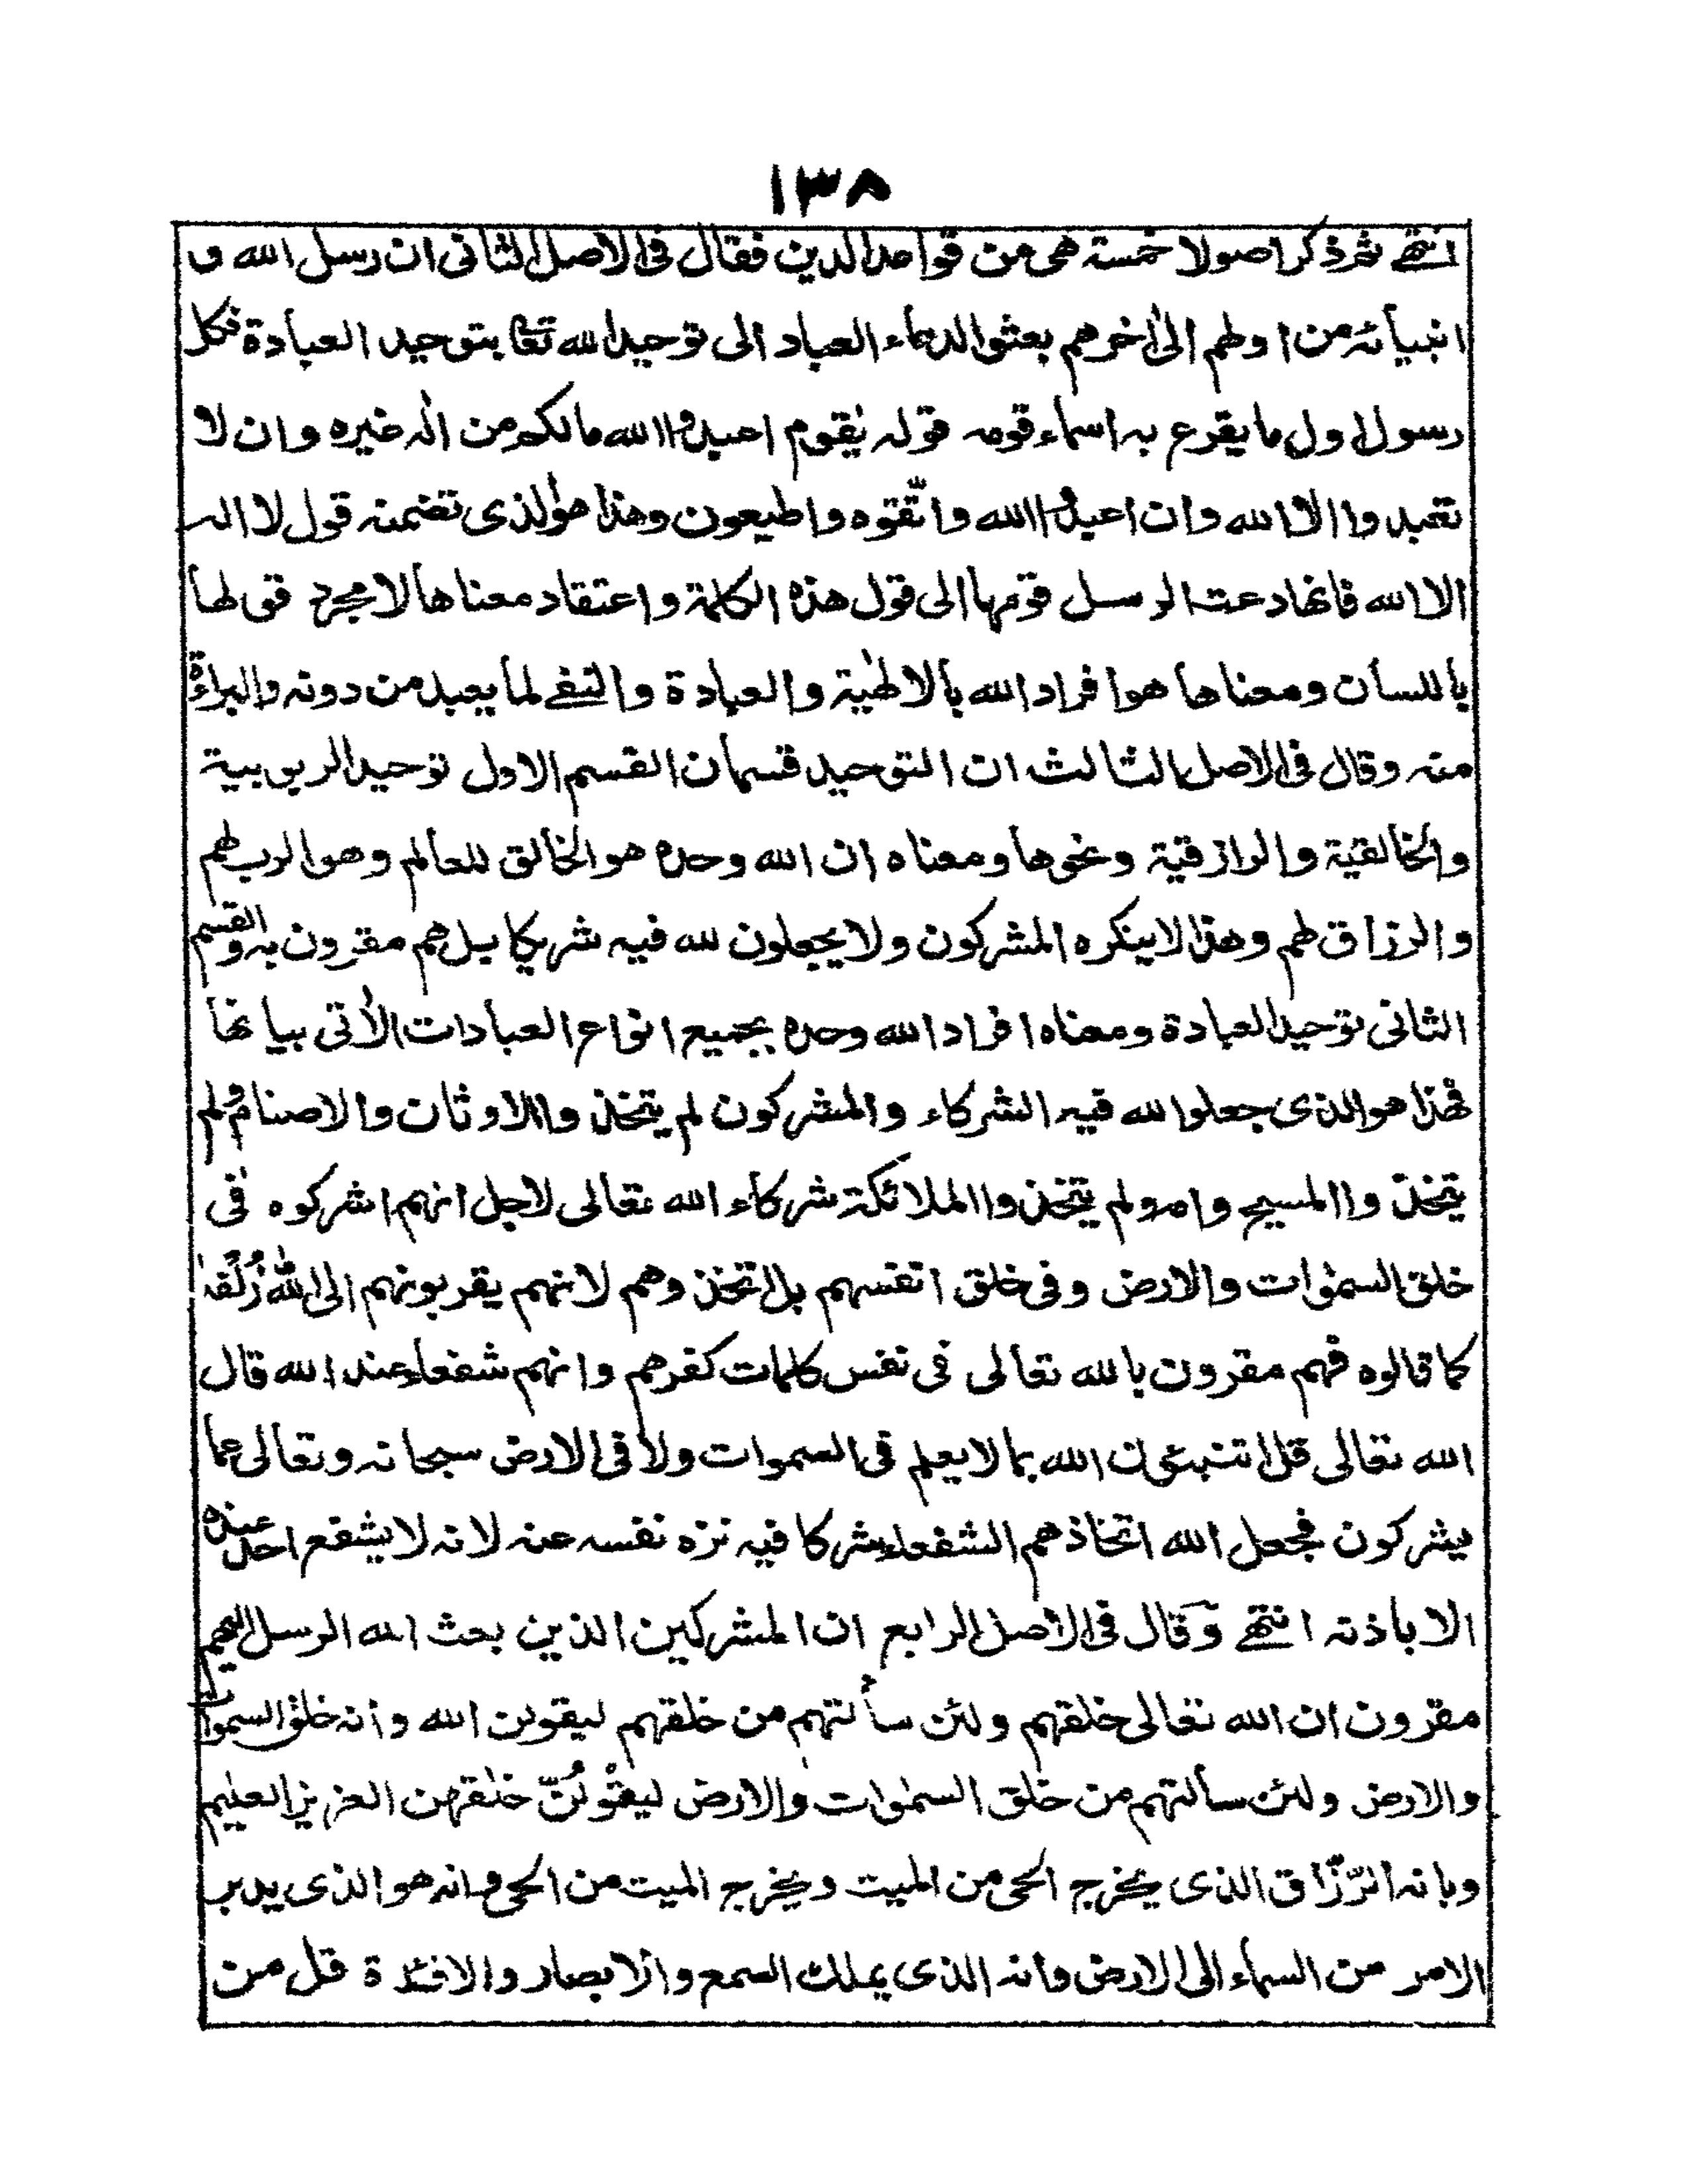 ١٣٨
انتهى ثم ذكر اصولا خمسة هى من قواعد الدين فقال فى الاصل الثانى ان رسل الله و
انبيائه من اولهم الى اٰخرهم بعثوا الدعاء العباد الى توحيد الله تعا بتوحيد العبادة فكل
رسول اول ما يقرع به اسماء قومه قوله يٰقوم اعبدوا الله مالكم من الٰه غيره وان لا
تعبدوا الا الله وان اعبدوا الله واتّقوه واطيعون وهذا هو الذى تضمنه قول لا اله
الا الله فانما دعت الرسل قومها الى قول هذه الكلمة واعتقاد معناها لا مجرد قولها
باللسان ومعناها هو افراد الله بالالٰهية والعبادة والنفے لما يعبد من دونه والبراءة
منه وقال فى الاصل الثالث ان التوحيد قسمان القسم الاول توحيد الربوبية
والخالقية والرازقية ونحوها ومعناه ان الله وحده هو الخالق للعالم وهو الرب لهم
والرزاق لهم وهذا لا ينكره المشركون ولا يجعلون لله فيه شريكا بل هم مقرون به والقسم
الثانى توحيد العبادة ومعناه افراد الله وحده بجميع انواع العبادات الاٰتى بيانها
فهذا هو الذى جعلوا لله فيه الشركاء والمشركون لم يتخذوا الاوثان والاصنام ولم
يتخذوا المسيح وامه ولم يتخذوا الملائكة شركاء الله تعالى لاجل انهم اشركوه فى
خلق السمٰوات والارض وفى خلق انفسهم بل اتخذوهم لانهم يقربونهم الى الله زُلْفٰے
كما قالوه فهم مقرون بالله تعالى فى نفس كلمات كفرهم وانهم شفعاء عند الله قال
الله تعالى قل اتنبئون الله بما لا يعلم فى السموات ولا فى الارض سبحانه وتعالى عما
يشركون فجعل الله اتخاذهم الشفعاء شركا فيه نزه نفسه عنه لانه لا يشفع احد عنده
الا باذنه انتهے وقال فى الاصل الرابع ان المشركين الذين بعث الله الرسل اليهم
مقرون ان الله تعالى خلقهم ولئن سألتهم من خلقهم ليقولن الله وأنه خلق السموات
والارض ولئن سألتهم من خلق السمٰوات والارض ليقُوْلُنَّ خلقهن العزيز العليم
وبانه الرّزّاق الذى يخرج الحى من الميت ويخرج الميت من الحى وانه هو الذى يدبر
الامر من السماء الى الارض وانه الذى يملك السمع والابصار والافئدة قل من